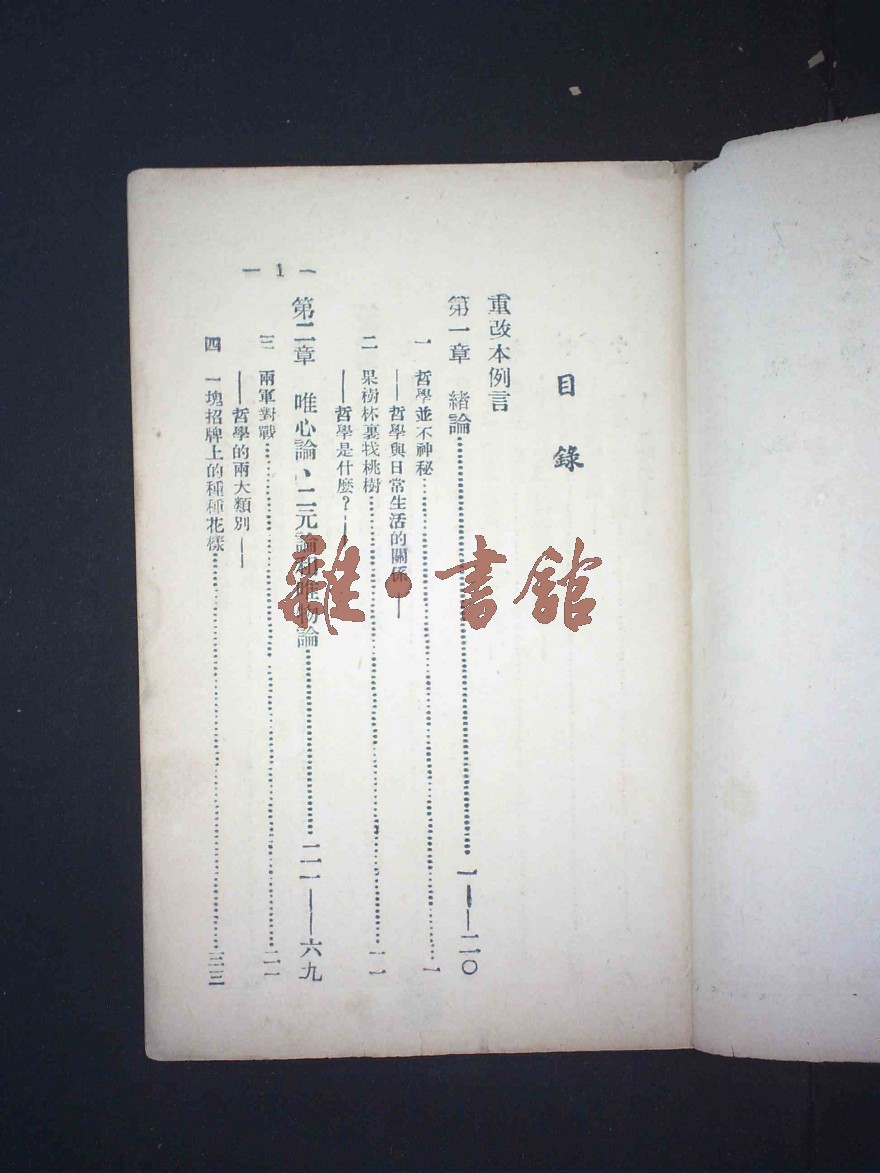 目錄
重改本例言
第一章 緒論…………一——二〇
一 哲學並不神秘…………一
——哲學與日常生活的關係——
二 果樹林裏找桃樹…………一一
——哲學是什麼？——
第二章 唯心論、二元論和唯物論…………二一——六九
三 兩軍對戰…………二一
——哲學的兩大類別——
四 一塊招牌上的種種花樣…………
— 1 —
雜·書館